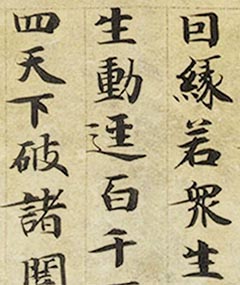 囙緣若衆生
生動逕百千
四天下破諸